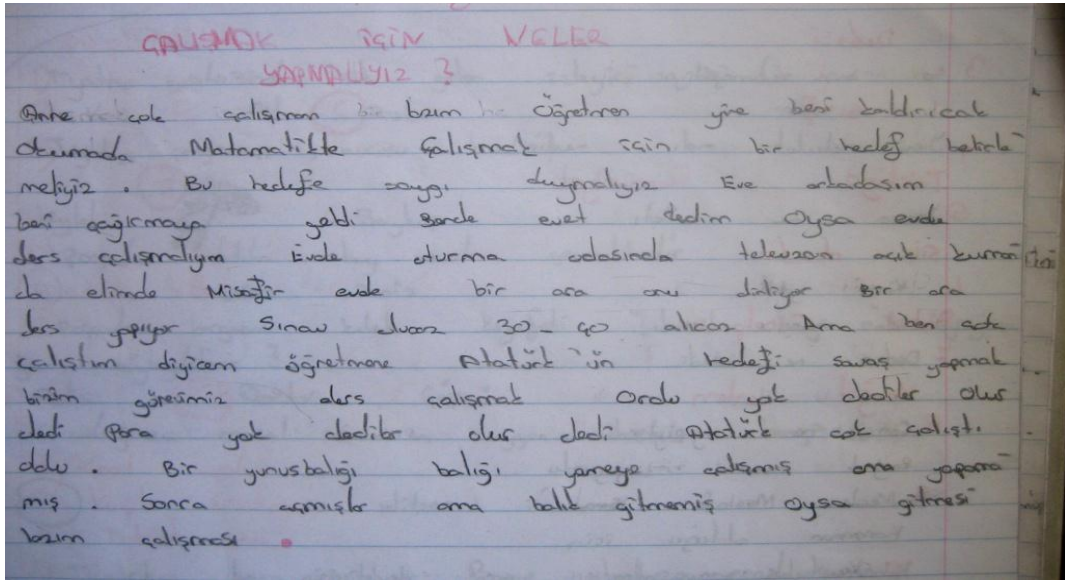 ÇALIŞMAK İÇİN NELER
YAPMALIYIZ ?
Anne çok çalışmam lazım Öğretmen yine beni kaldırıcak
Okumada Matamatikte Çalışmak için bir hedef belirle
meliyiz . Bu hedefe saygı duymalıyız Eve arkadaşım
beni çağırmaya geldi Bende evet dedim Oysa evde
ders çalışmalıyım Evde oturma odasında televzon açık kuman
da elimde Misafir evde bir ara onu dinliyor Bir ara
ders yapıyor Sınav olucaz 30 - 40 alıcaz Ama ben çok
çalıştım diyicem öğretmene Atatürk'ün hedefi savaş yapmak
bizim görevimiz ders çalışmak Ordu yok dediler olur
dedi Para yok dediler olur dedi Atatürk çok çalıştı.
oldu . Bir yunusbalığı balığı yemeye çalışmış ama yapama
mış . Sonra açmışlar ama balık gitmemiş Oysa gitmesi
lazım çalışması .